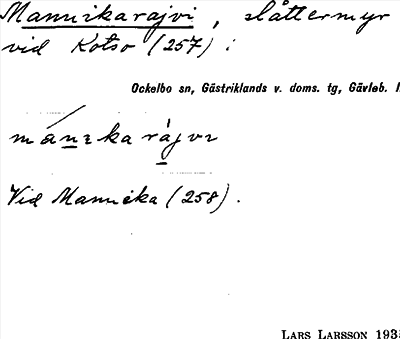 Mannikarajvi, slåttermyr
vid Kotso (257) :
Ockelbo sn, Gästriklands v. doms. tg, Gävleb. l
mánıka rájvı
Vid Mannika (258).
LARS LARSSON 193